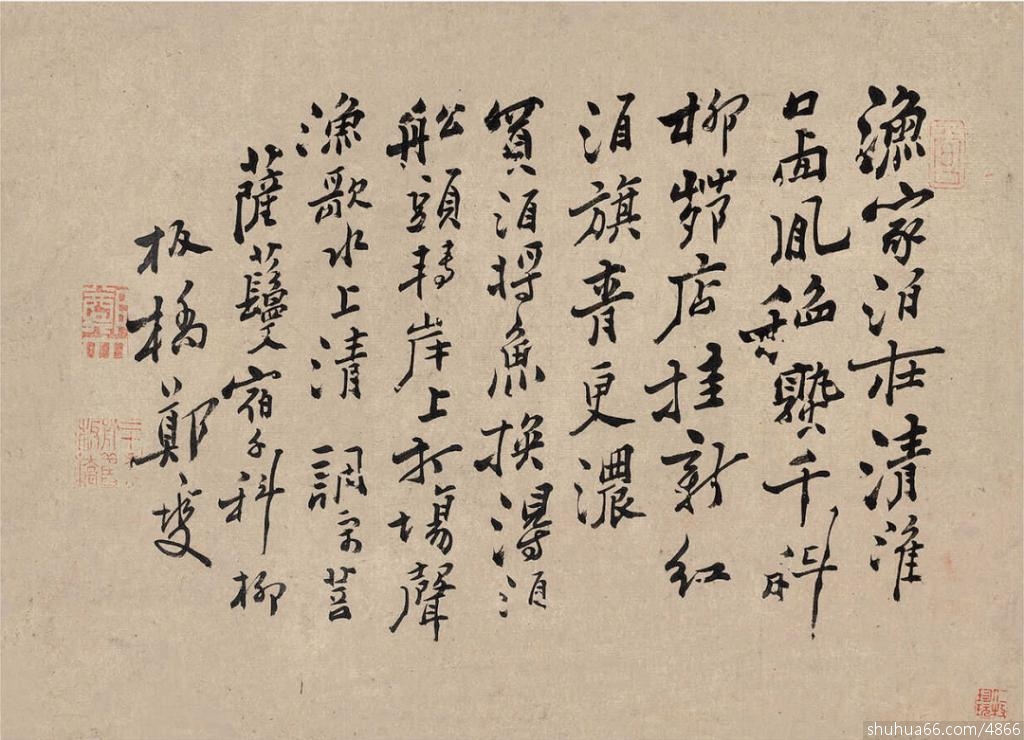 漁家泊在清淮
口西風稻熟千斛
柳茆店挂新紅
酒旗青更濃
買酒將魚換得酒
舩頭轉岸上打場聲
漁歌水上清 調寄菩
薩蠻宿千科柳
板橋鄭燮
shuhua66.com/4866